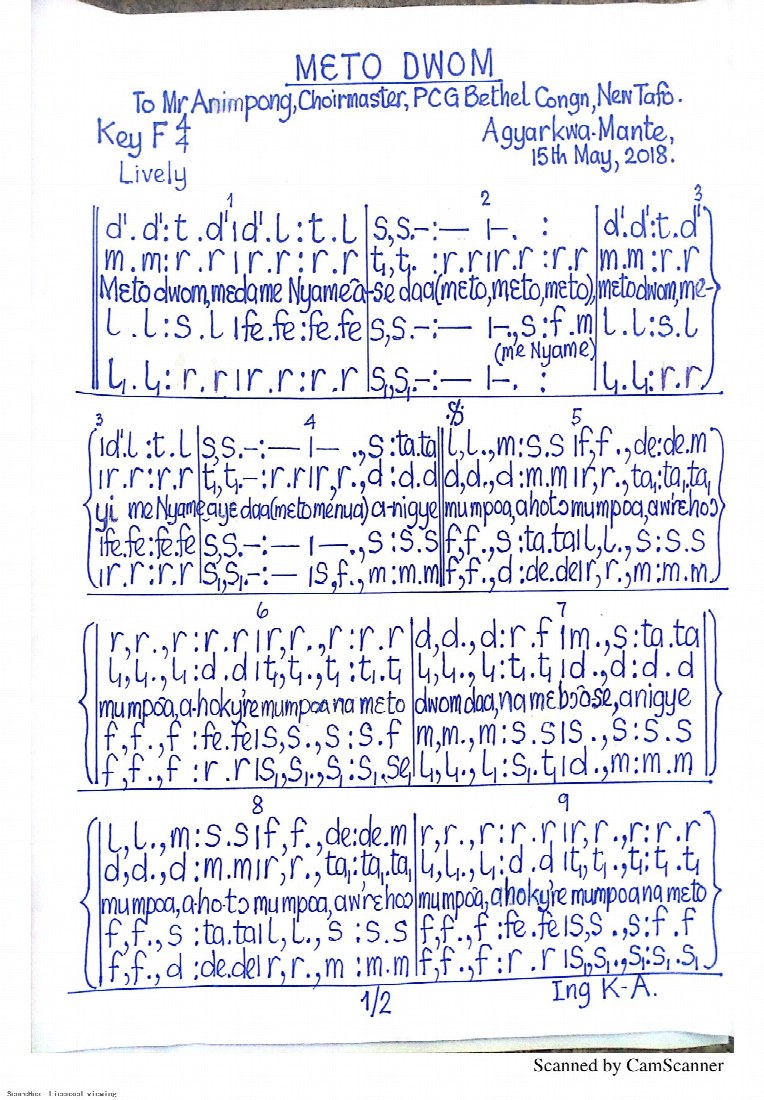 MƐTO DWOM
To Mr Animpong, Choirmaster, PCG Bethel Congn, New Tafo.
Key F 4/4
Agyarkwa-Mante,
15th May, 2018.
Lively
1 2 3
d'.d':t.d'|d'.l:t.l|s,s.-:— |-. :|d'.d':t.d'
m.m:r.r|r.r:r.r|t₁,t₁. :r.r|r.r:r.r|m.m:r.r
Mɛto dwom, meda me Nyame a-se daa (mɛto, mɛto, mɛto), mɛto dwom, me-
l.l:s.l|fe.fe:fe.fe|s,s.-:— |-.,s:f.m|l.l:s.l
(me Nyame)
l₁.l₁:r.r|r.r:r.r|s₁,s₁.-:— |-. :|l₁.l₁:r.r
3 4 5
|d'.l:t.l|s,s.-:— |— .,s:ta.ta|l,l.,m:s.s|f,f.,de:de.m
|r.r:r.r|t₁,t₁.-:r.r|r,r.,d:d.d|d,d.,d:m.m|r,r.,ta₁:ta₁.ta₁
yi me Nyame aye daa (mɛto mɛnua) a-nigye mumpoa, ahotɔ mumpoa, awrɛhoɔ
|fe.fe:fe.fe|s,s.-:— |—.,s:s.s|f,f.,s:ta.ta|l,l.,s:s.s
|r.r:r.r|s₁,s₁.-:— |s,f.,m:m.m|f,f.,d:de.de|r,r.,m:m.m
6 7
r,r.,r:r.r|r,r.,r:r.r|d,d.,d:r.f|m.,s:ta.ta
l₁,l₁.,l₁:d.d|t₁,t₁.,t₁:t₁.t₁|l₁,l₁.,l₁:t₁.t₁|d.,d:d.d
mumpoa, a-hokyre mumpoa na mɛto dwom daa, na mɛbɔ ose, anigye
f,f.,f:fe.fe|s,s.,s:s.f|m,m.,m:s.s|s.,s:s.s
f,f.,f:r.r|s₁,s₁.,s₁:s₁.se₁|l₁,l₁.,l₁:s₁.t₁|d.,m:m.m
8 9
l,l.,m:s.s|f,f.,de:de.m|r,r.,r:r.r|r,r.,r:r.r
d,d.,d:m.m|r,r.,ta₁:ta₁.ta₁|l₁,l₁.,l₁:d.d|t₁,t₁.,t₁:t₁.t₁
mumpoa, a-ho-tɔ mumpoa, awrɛhoɔ mumpoa, ahokyre mumpoa na mɛto
f,f.,s:ta.ta|l,l.,s:s.s|f,f.,f:fe.fe|s,s.,s:f.f
f,f.,d:de.de|r,r.,m:m.m|f,f.,f:r.r|s₁,s₁.,s₁:s₁.s₁
1/2
Ing K-A.
Scanned by CamScanner